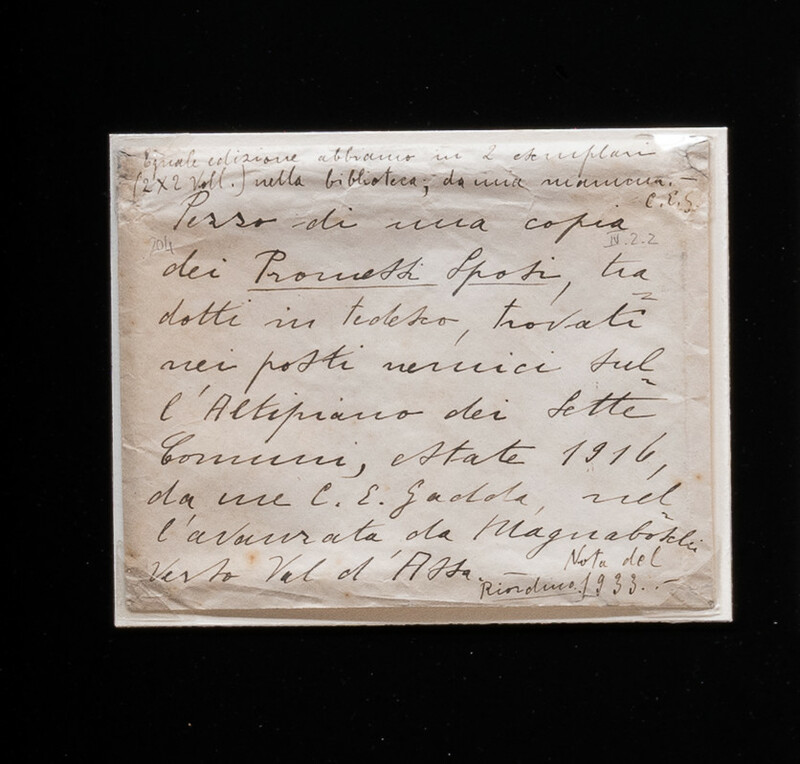 Eguale edizione abbiamo in 2 esemplari
(2X2 Voll.) nella biblioteca; da una mancan. -
C.E.G.
Pezzo di una copia
204
IV.2.2
dei Promessi Sposi, tra=
dotti in tedesco, trovati
nei posti nemici sul=
l'Altipiano dei Sette
Comuni, estate 1916,
da me C. E. Gadda, nel=
l'avanzata da Magnaboschi
verso Val d'Assa.
Nota del
Riordino 1933. -